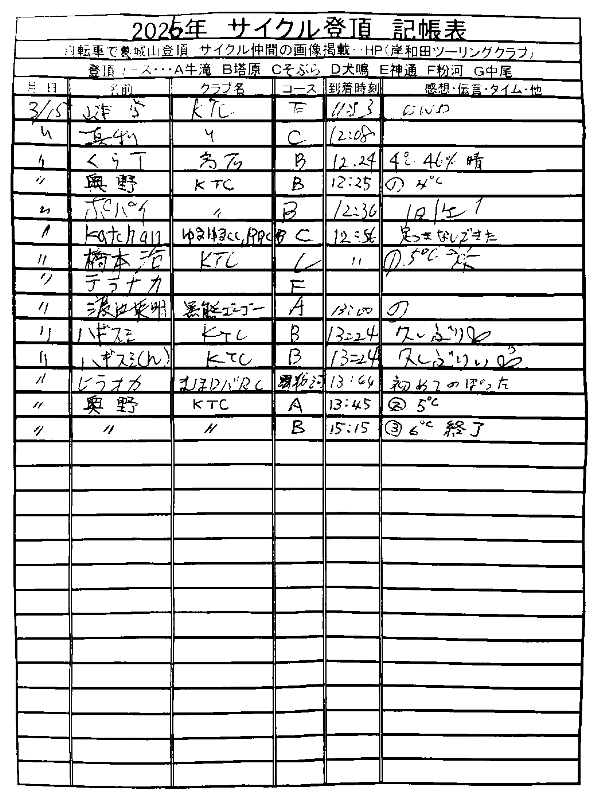 2026年 サイクル登頂 記帳表
自転車で葛城山登頂 サイクル仲間の画像掲載・・HP(岸和田ツーリングクラブ)
登頂コース・・・A牛滝 B塔原 Cそぶら D犬鳴 E神通 F粉河 G中尾
月 日 名前 クラブ名 コース 到着時刻 感想・伝言・タイム・他
3/15 KTC E 11:53
〃 真利 〃 C 12:08
〃 くら丁 B 12:24 4℃ 46% 晴
〃 奥野 KTC B 12:25 の 4℃
〃 ポパイ 〃 B 12:36
〃 Katchan ゆるゆるCC, C 12:56
〃 橋本 治 KTC 〃 の 5℃
〃 テラナカ F
〃 A 13:00 の
〃 ハギスミ KTC B 13=24 久しぶり
〃 ハギスミ(ん) KTC B 13=24 久しぶりい
〃 ヒラオカ 13:44 初めてのぼった
〃 奥野 KTC A 13:45 ② 5℃
〃 〃 〃 B 15:15 ③ 6℃ 終了